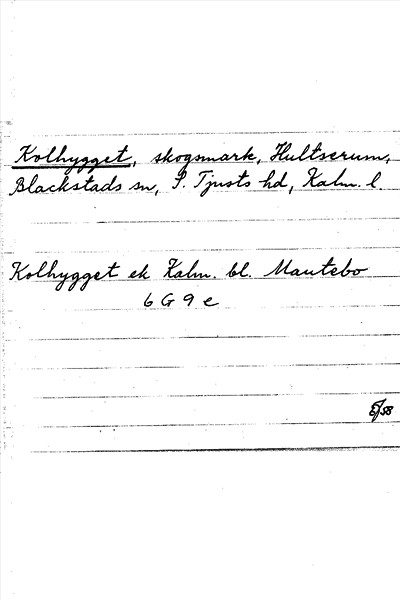 Kolhygget, skogsmark, Hultserum,
Blackstads sn, S. Tjusts hd, Kalm. l.
Kolhygget ek Kalm. bl. Mautebo
6 G 9 e
58